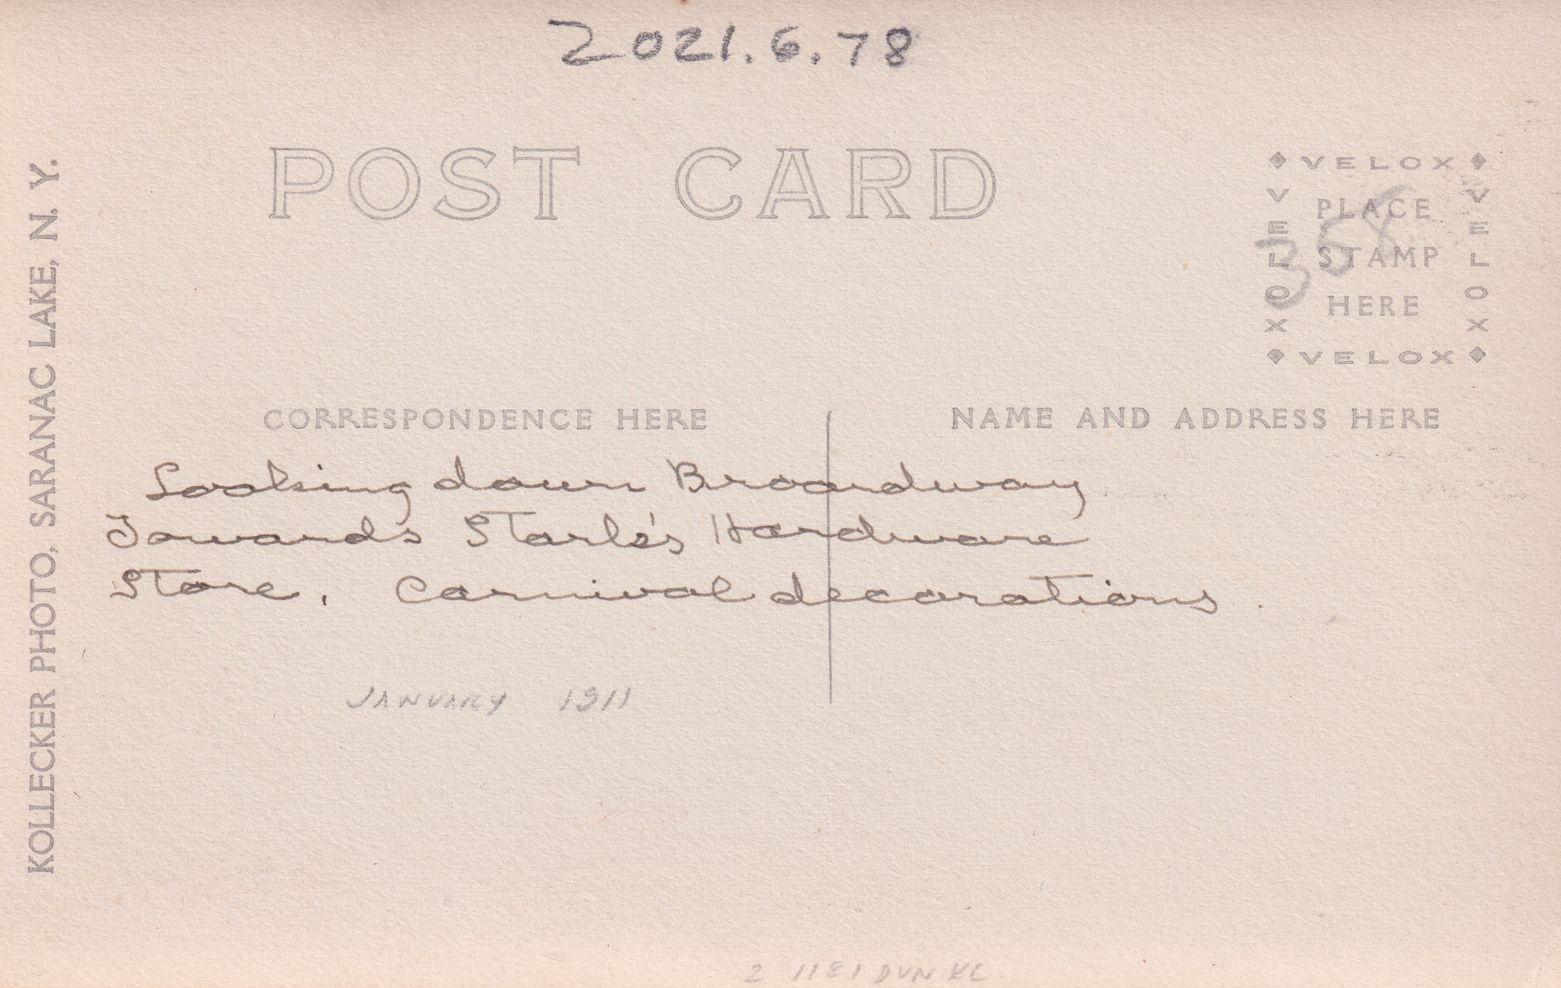 2021.6.78
POST CARD
VELOX
VELOX
VELOX
VELOX
PLACE
STAMP
HERE
358
KOLLECKER PHOTO, SARANAC LAKE, N. Y.
CORRESPONDENCE HERE
NAME AND ADDRESS HERE
Looking down Broadway
Towards Stark's Hardware
Store. Carnival decorations.
JANUARY 1911
2 1181